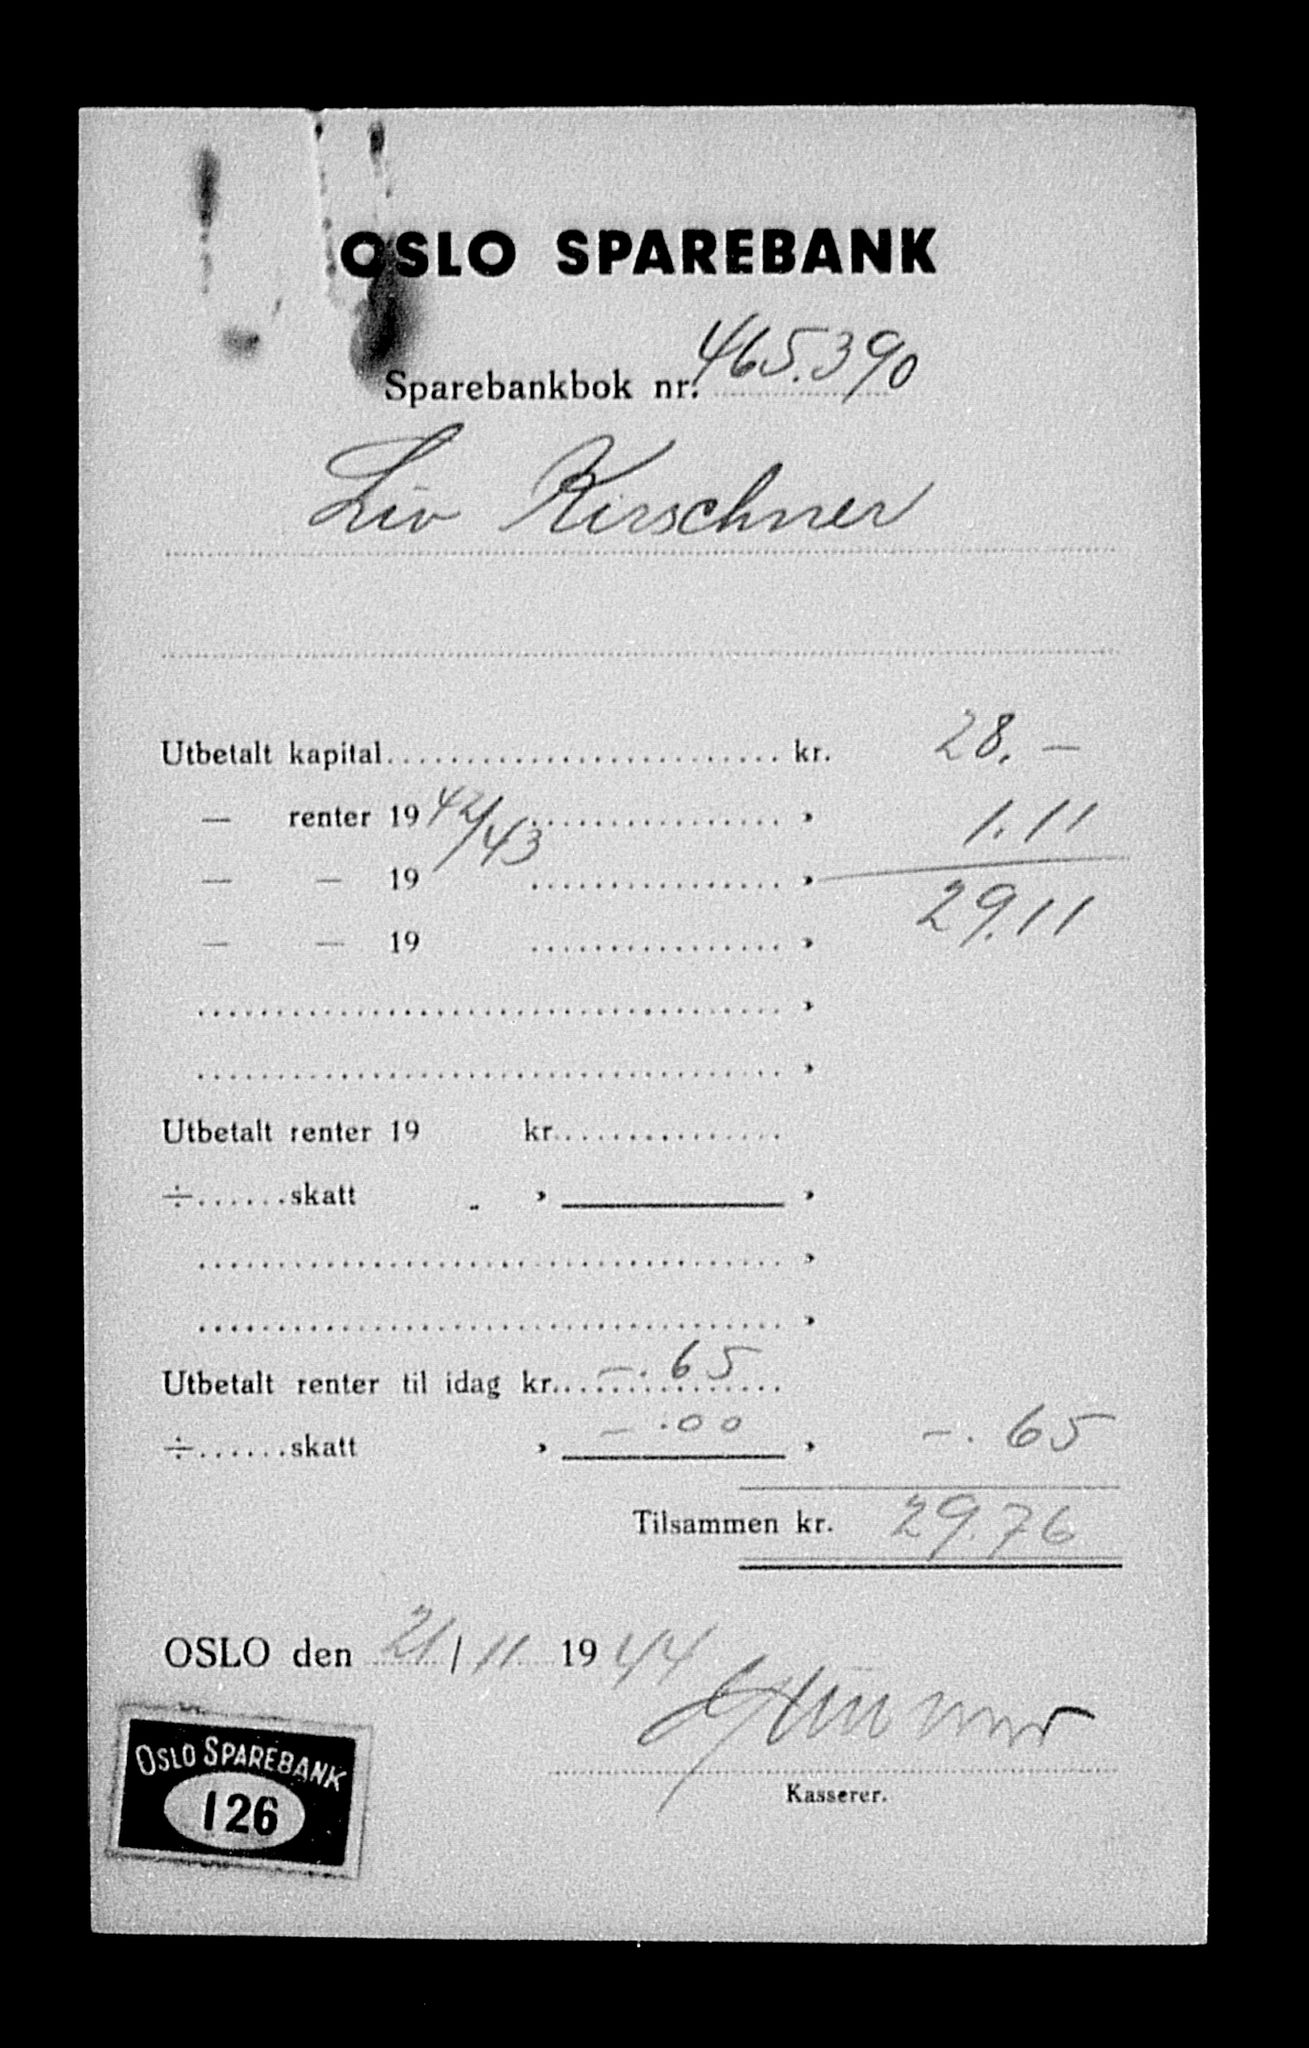 OSLO SPAREBANK
Sparebankbok nr. 465.390
Liv Kirschner
Utbetalt kapital........................ kr. 28.—
— renter 19 42/43 ................ » 1.11
— — 19 ................ » 29.11
— — 19 ................ »
..................................... »
..................................... »
Utbetalt renter 19 kr...............
÷......skatt »  »
..................................... »
..................................... »
Utbetalt renter til idag kr. —.65
÷......skatt » —.00 » —.65
Tilsammen kr. 29.76
OSLO den 21/11 1944
Kasserer.
OSLO SPAREBANK
126